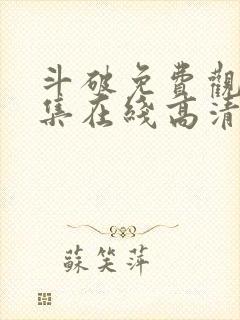 斗破免費觀
集在綫高清
蘇笑萍